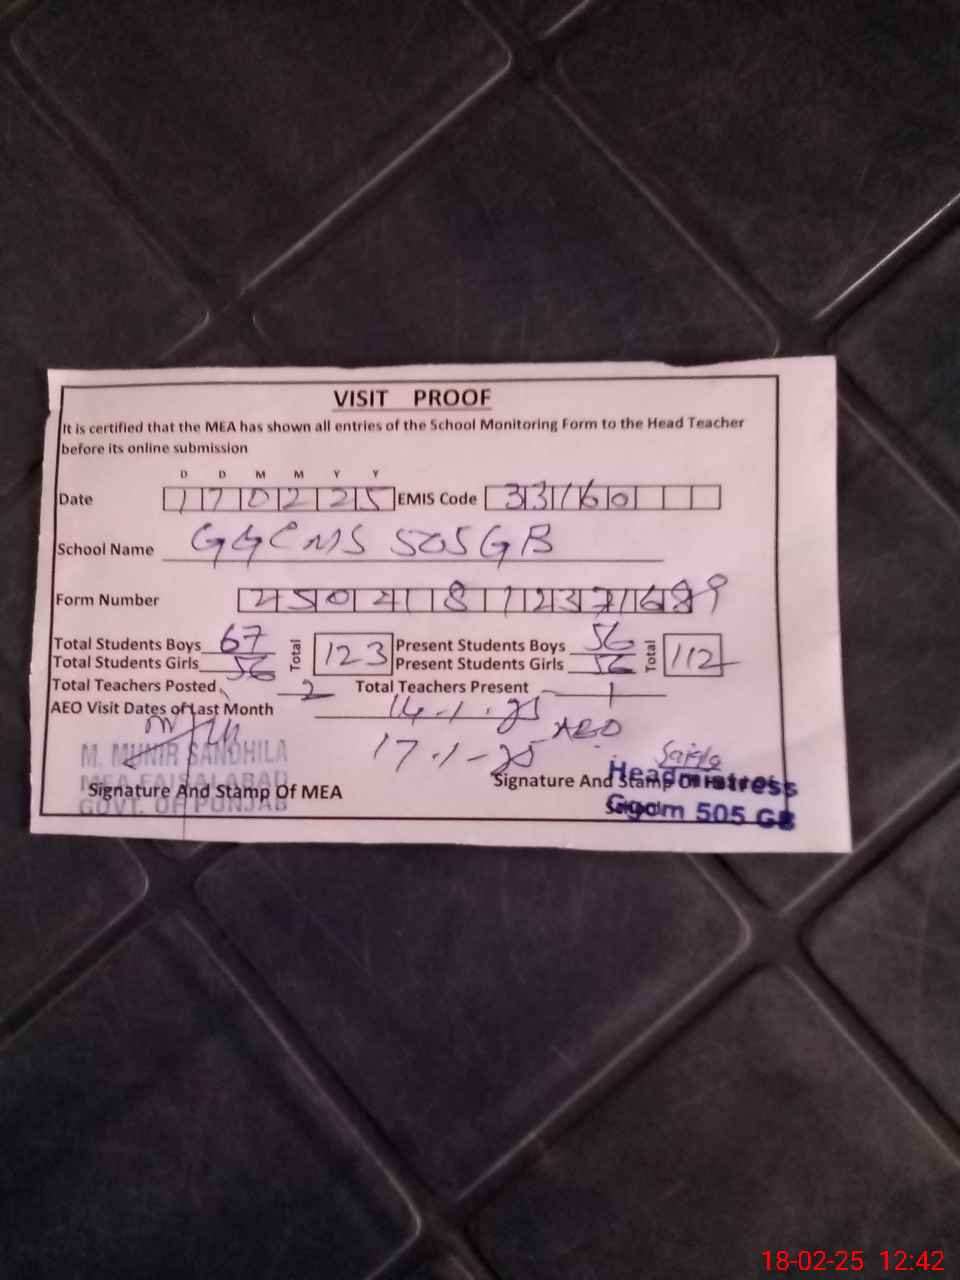 VISIT PROOF
It is certified that the MEA has shown all entries of the School Monitoring Form to the Head Teacher
before its online submission
D D M M Y Y
Date 170225 EMIS Code 33160
School Name GGCMS 505 GB
Form Number
Total Students Boys 67 Total 123 Present Students Boys 56 Total 112
Total Students Girls 56 Present Students Girls 56
Total Teachers Posted 2 Total Teachers Present 1
AEO Visit Dates of Last Month 14.1.25
17.1-25 AEO
M. MUNIR SANDHILA
MEA FAISALABAD
GOVT. OF PUNJAB
Signature And Stamp Of MEA
Saida
Signature And Stamp Of
Headmistress
Ggcm 505 GB
18-02-25 12:42